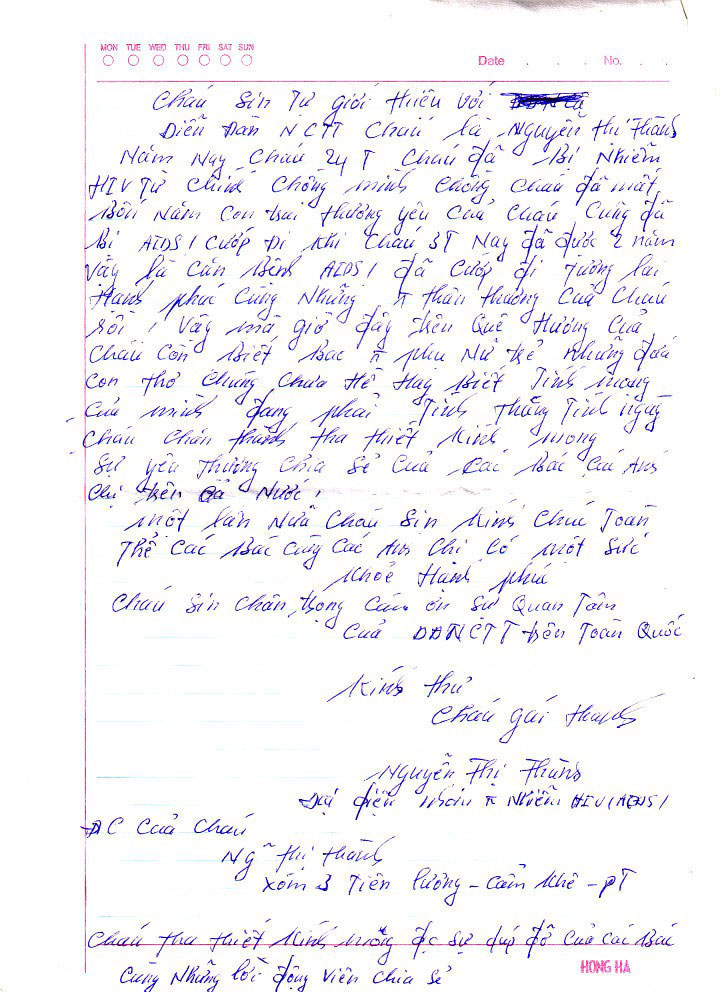 MON TUE WED THU FRI SAT SUN
Date . . . No. . .
Cháu Sin Tự giới thiệu với
Diễn Đàn NCTT Cháu là Nguyễn Thị Thành
Năm Nay Cháu 24T Cháu đã Bị Nhiễm
HIV Từ Chính Chồng mình Chồng Cháu đã mất
Bốn Năm Con trai thương yêu Của Cháu Cũng đã
Bị AIDS1 Cướp Đi Khi Cháu 3T Nay đã được 2 năm
Vậy là Căn Bệnh AIDS1 đã Cướp đi Tương lai
Hạnh phúc Cùng Những π thân thương Của Cháu
rồi ! Vậy mà giờ đây trên Quê Hương Của
Cháu Còn Biết Bao π phụ Nữ trẻ Những đứa
Con thơ Chúng Chưa Hề Hay Biết Tính mạng
Của mình đang phải Tính Tháng Tính ngày
Cháu Chân thành tha thiết Kính mong
Sự yêu Thương Chia Sẻ Của Các Bác Cùng Anh
Chị trên Cả Nước,
một lần Nữa Cháu Sin Kính Chúc Toàn
Thể Các Bác Cùng Các Anh Chị Có một Sức
Khoẻ Hạnh phúc
Cháu Sin Chân trọng Cám ơn Sự Quan Tâm
Của DĐNCTT trên Toàn Quốc
Kính thư
Cháu gái Thành
Nguyễn Thị Thành
Đại diện nhóm π Nhiễm HIV(AIDS1
ĐC Của Cháu
Ng~ Thị Thành
Xóm 3 Tiên lương - Cẩm Khê - PT
Cháu tha thiết Kính mong đc sự dúp đỡ Của Các Bác
Cùng Những lời động Viên Chia Sẻ
HONG HA